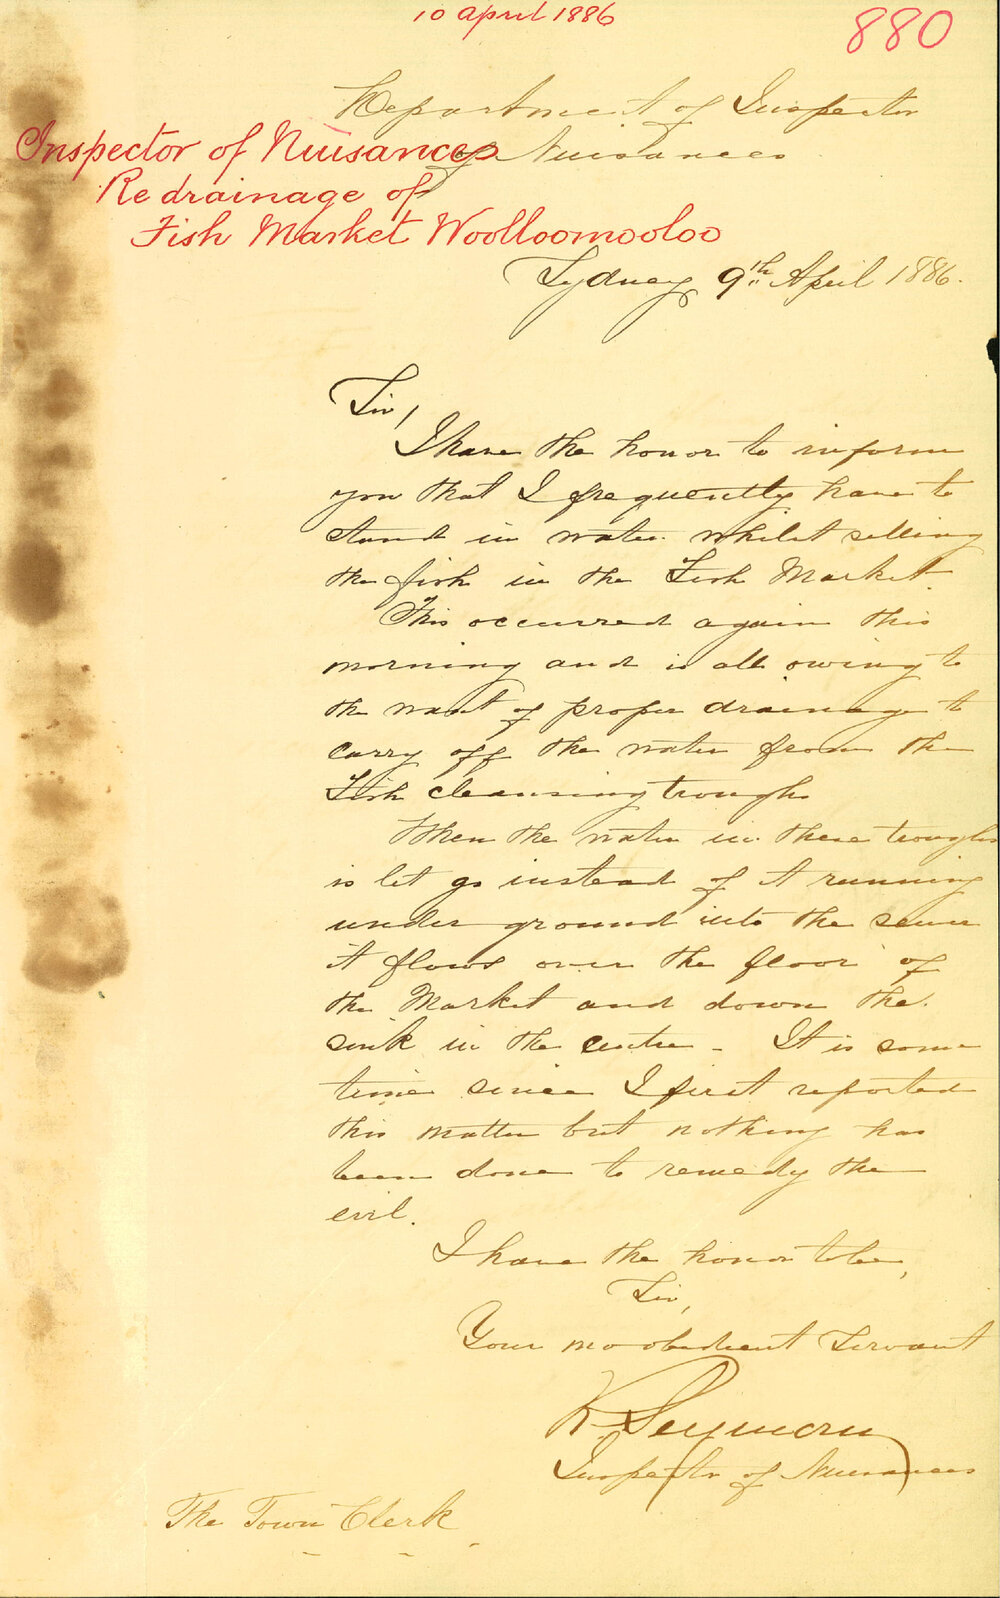 10 April 1886
880
Department of Inspector
of Nuisances
Inspector of Nuisances
Re drainage of
Fish Market Woolloomooloo
Sydney, 9th April 1886.
Sir,
I have the honor to inform
you that I frequently have to
stand in water whilst selling
the fish in the Fish Market.
This occurred again this
morning and is all owing to
the want of proper drainage to
carry off the water from the
Fish cleansing troughs
When the water in these troughs
is let go instead of it running
under ground into the sewer
it flows over the floor of
the Market and down the
sink in the centre - It is some
time since I first reported
this matter but nothing has
been done to remedy the
evil.
I have the honor to be,
Sir,
Your mo obedient Servant
Seymour
Inspector of Nuisances
The Town Clerk